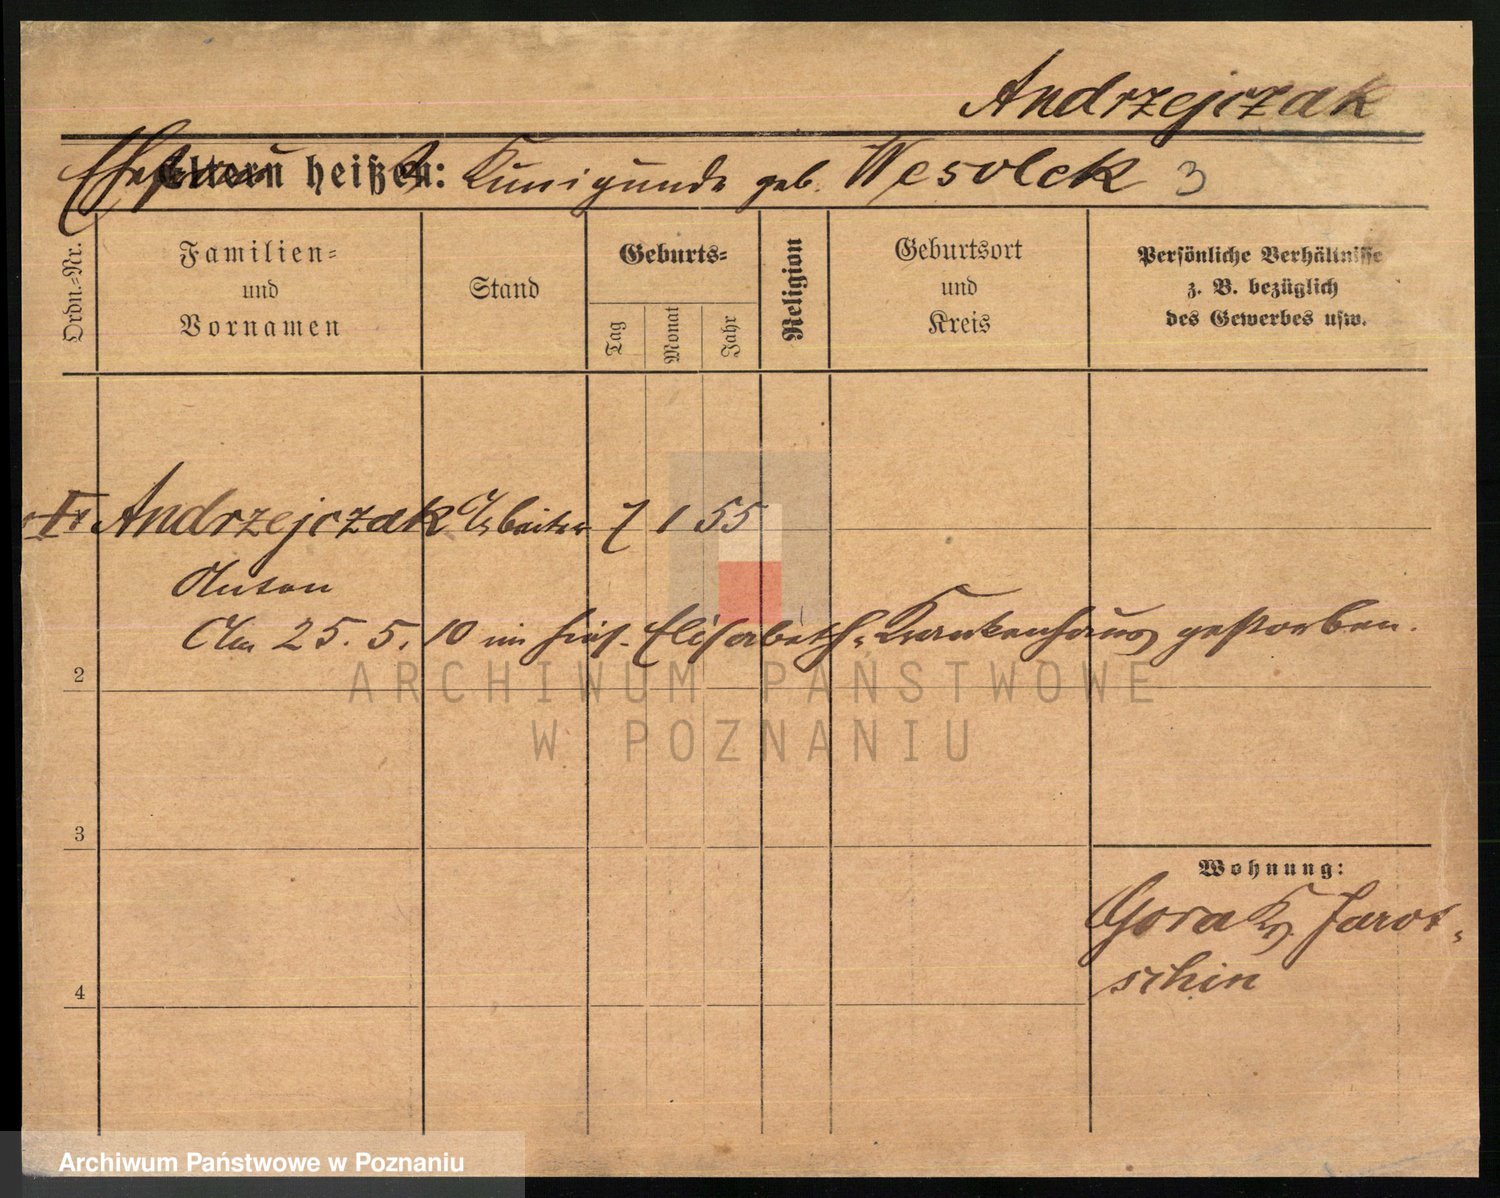 Andrzejczak
Eltern heißen: Kunigunde geb. Wesolek 3
Ordn.-Nr.
Familien-
und
Vornamen
Stand
Geburts-
Tag
Monat
Jahr
Religion
Geburtsort
und
Kreis
Persönliche Verhältnisse
z. B. bezüglich
des Gewerbes usw.
Andrzejczak Arbeiter 7 1 55
Anton
Am 25. 5. 10 im hies. Elisabeth-Krankenhaus gestorben.
2
ARCHIWUM PAŃSTWOWE
W POZNANIU
3
Wohnung:
Gora Kr. Jarot-
schin
4
Archiwum Państwowe w Poznaniu